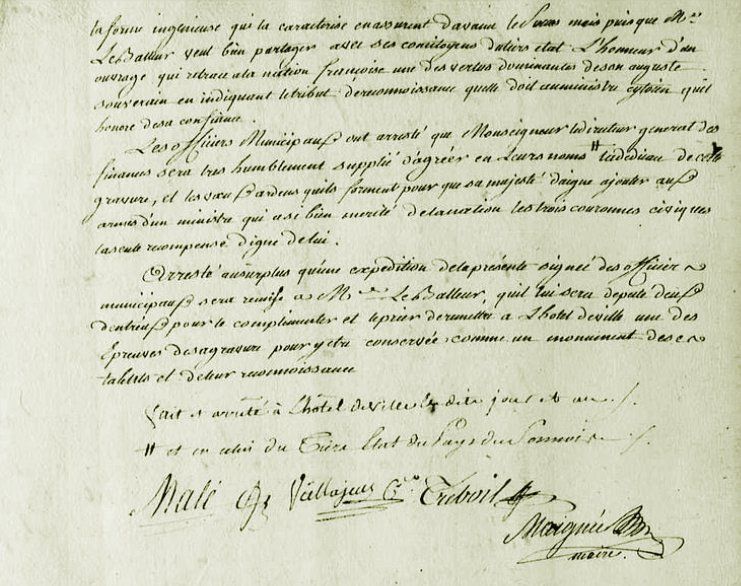 la forme ingenieuse qui la caracterise en assurent d'avance le Succes mais puisque Mr.
Le Batteur veut bien partager avec ses concitoyens du tiers état L'honneur d'un
ouvrage qui retrace a la nation françoise une des vertus dominantes de son auguste
souverain en indiquant le tribut de reconnoissance quelle doit au ministre cytoien quil
honore de sa confiance.
Les officiers Municipaux ont arresté que Monseigneur le directeur general des
finances sera tres humblement supplié d'agréer en Leurs noms # la dédicace de cette
gravure, et les vœux ardens quils forment pour que sa majesté daigne ajouter aux
armes d'un ministre qui a si bien merité de la nation les trois couronnes civiques
la seule recompense digne de lui.
Arresté au surplus qu'une expedition de la présente signée des officiers
municipaux sera remise a Mr. Le Batteur, quil lui sera deputé deux
dentreux pour le complimenter et le prier de remettre a L'hotel de ville une des
Epreuves de sa gravure pour y etre conservée comme un monument de ses
talents et de leur reconnoissance
fait et arrêté à L'hôtel de ville les dits jour et an /.
# et en celui du Tiers Etat du Pays du
Malé Veillajeux Treboil
Maignée
maire.